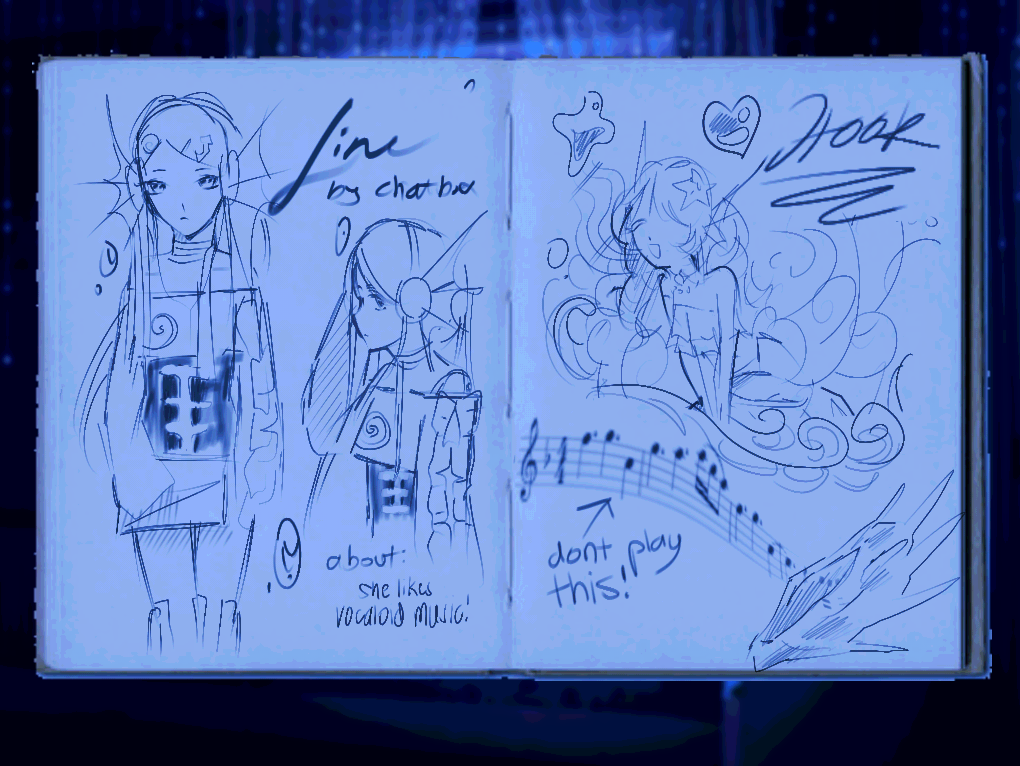 line
by chatbox
about:
she likes
vocaloid music!
Hook
dont play
this!